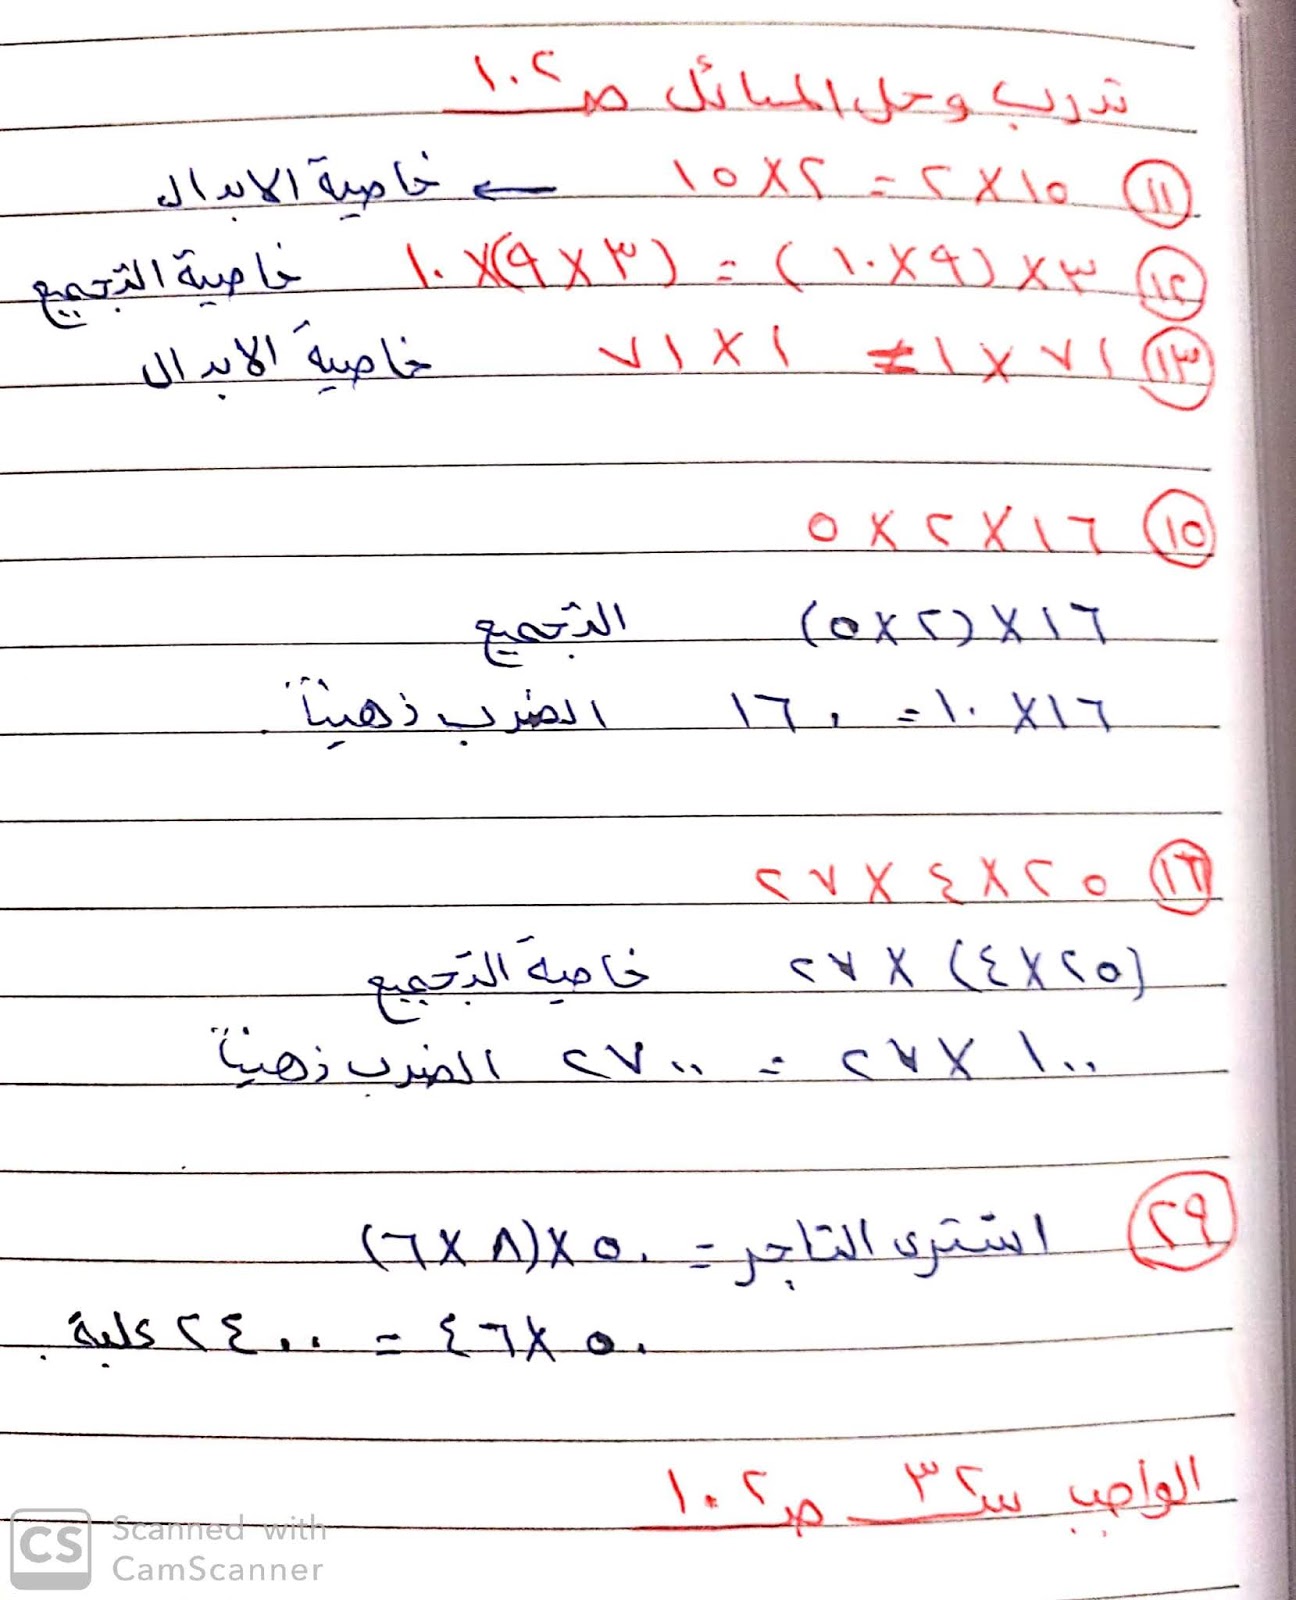 تدرب وحل المسائل ص ١٠٢
١١ ١٥ × ٢ = ٢ × ١٥ ← خاصية الابدال
١٢ ٣ × (٩ × ١٠) = (٣ × ٩) × ١٠ خاصية التجميع
١٣ ٧١ × ١ ≠ ١ × ٧١ خاصية الابدال
١٥ ١٦ × ٢ × ٥
١٦ × (٢ × ٥) التجميع
١٦ × ١٠ = ١٦٠ الضرب ذهنياً
١٦ ٢٥ × ٤ × ٢٧
(٢٥ × ٤) × ٢٧ خاصية التجميع
١٠٠ × ٢٧ = ٢٧٠٠ الضرب ذهنياً
٢٩ اشترى التاجر = ٥٠ × (٨ × ٦)
٥٠ × ٤٦ = ٢٤٠٠ علبة .
الواجب س ٣٢ ص ١٠٢
CS Scanned with
CamScanner